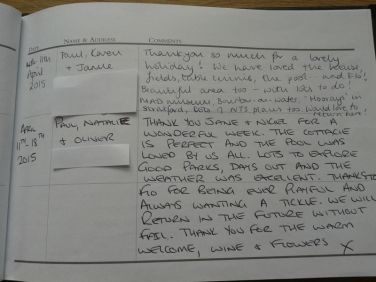 DATE NAME & ADDRESS COMMENTS
April 2015
Paul, Karen
& Janne
Thank you so much for a lovely
holiday! We have loved the house,
fields, table tennis, the pool - and Fio!
Beautiful area too - with lots to do!
MAD museum, Bourton-on-water, 'Hoorays' in
Stratford, lots of NTS places too. Would love to
return here
APRIL
11TH 18TH
2015
PAUL, NATALIE
& OLIVER
THANK YOU JANE & NIGEL FOR A
WONDERFUL WEEK. THE COTTAGE
IS PERFECT AND THE POOL WAS
LOVED BY US ALL. LOTS TO EXPLORE
GOOD PARKS, DAYS OUT AND THE
WEATHER WAS EXCELLENT. THANKS TO
FIO FOR BEING EVER PLAYFUL AND
ALWAYS WANTING A TICKLE. WE WILL
RETURN IN THE FUTURE WITHOUT
FAIL. THANK YOU FOR THE WARM
WELCOME, WINE & FLOWERS X